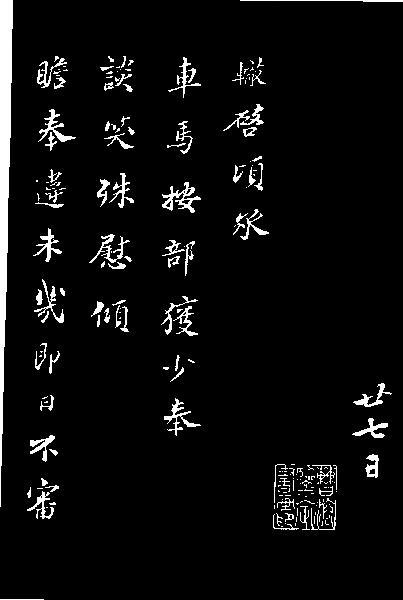 廿七日
轍啓頃承
車馬按部獲少奉
談笑殊慰傾
瞻奉違未幾即日不審